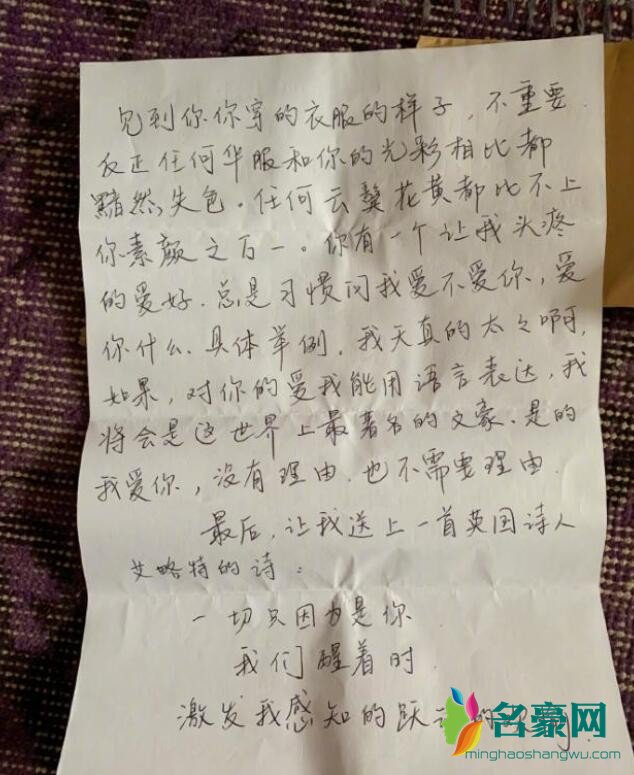 见到你你穿的衣服的样子，不重要.
反正任何华服和你的光彩相比都
黯然失色。任何云鬓花黄都比不上
你素颜之万一。你有一个让我头疼
的爱好.总是习惯问我爱不爱你，爱
你什么.具体举例.我天真的太太啊,
如果，对你的爱我能用语言表达，我
将会是这世界上最著名的文豪.是的
我爱你，没有理由.也不需要理由.
最后，让我送上一首英国诗人
艾略特的诗：
一切只因为是你
我们醒着时.
激发我感知的跃动的
名豪网
minghaoshangwu.com